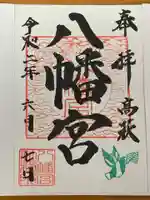 奉拝
高萩
八幡宮
令和二年
六月
七日